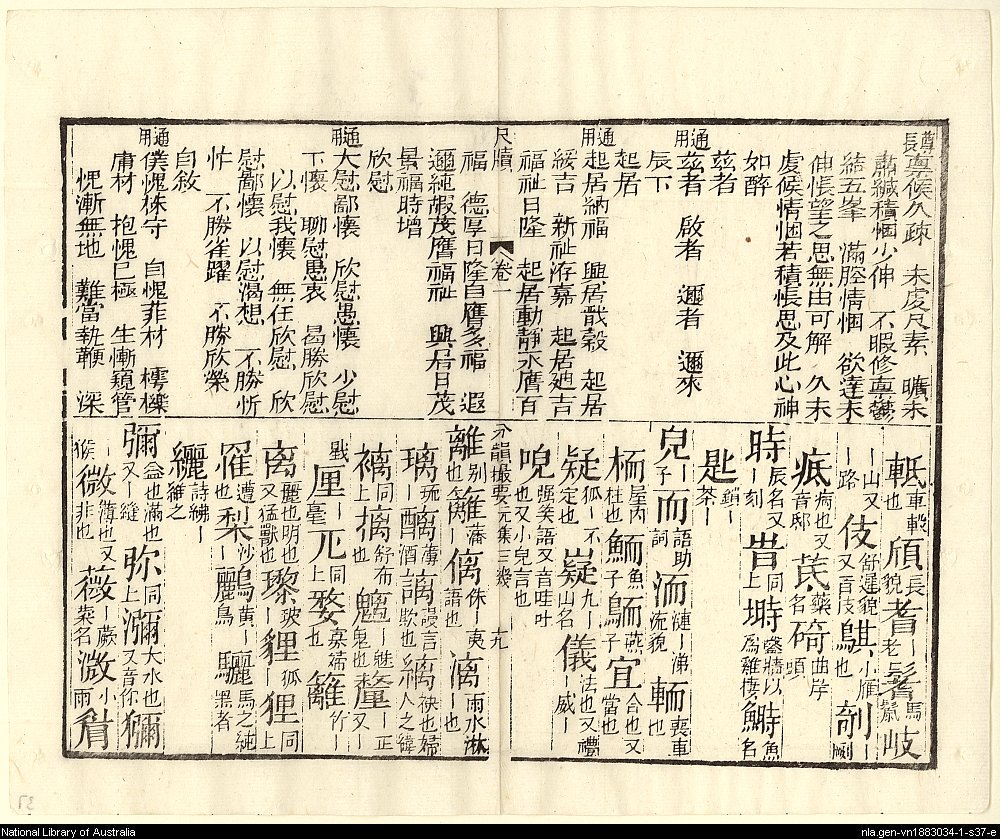 尊長 稟候久疎 未虔尺素 曠未
肅緘積悃少伸 不暇修稟鬱
結五峯 滿腔情悃 欲達未
伸悵望之思無由可解 久未
虔候情悃若積悵思及此心神
如醉
茲者
通用 茲者 啟者 邇者 邇來
辰下
起居
通用 起居納福 興居戩穀 起居
綏吉 新祉洊嘉 起居廸吉
福祉日隆 起居動靜永膺百
尺牘 卷一
福 德厚日隆自膺多福 遐
邇純嘏茂膺福祉 興居日茂
曇福時增
欣慰
通用 大慰鄙懷 欣慰愚懷 少慰
下懷 聊慰愚衷 曷勝欣慰
以慰我懷 無任欣慰 欣
慰鄙懷 以慰渴想 不勝忻
忭 不勝雀躍 不勝欣榮
自敘
通用 僕愧株守 自愧菲材 樗櫟
庸材 抱愧已極 生慚窺管
怩漸無地 難當執鞭 深
軝車轂也 頎長貌 耆丨老 鬐馬鬣 岐
丨山又丨路 伎舒遲貌又音支 鶀小雁也 剞丨劂
疧病也又音邸 芪藥名 碕曲岸頭
時辰名又丨刻 旹同上 塒鑿牆以爲雞棲 鰣魚名
匙鎖丨茶丨
兒丨子 而語助詞 洏漣丨涕流貌 輀喪車也
栭屋內柱也 鮞魚子 鴯燕子 宜合也又當也
疑狐丨不定也 嶷九丨山名 儀法也又禮丨威丨
唲強笑語又音哇吐也又小兒言也
分韻撮要 元集三幾 十九
離别也 籬藩丨也 偊侏丨夷語也 漓雨水淋丨也
璃琉丨 醨薄酒 謧謾言欺也 縭袂也婦人之緯
褵同上 摛舒布也 魑丨魅鬼也 釐又丨正
戥 厘丨毫 兀同上 嫠寡婦也 籬竹丨
离麗也明也又猛獸也 瓈玻丨 貍狐丨 狸同上
罹遭也 梨沙丨 鸝黃丨鳥 驪馬之純黑者
纚詩紼丨維之
彌益也滿也又丨縫 弥同上 瀰大水也又音你 獼
丨猴 微丨薄也又非也 薇丨蕨菜名 溦小雨 䉠
National Library of Australia
nla.gen-vn1883034-1-s37-e